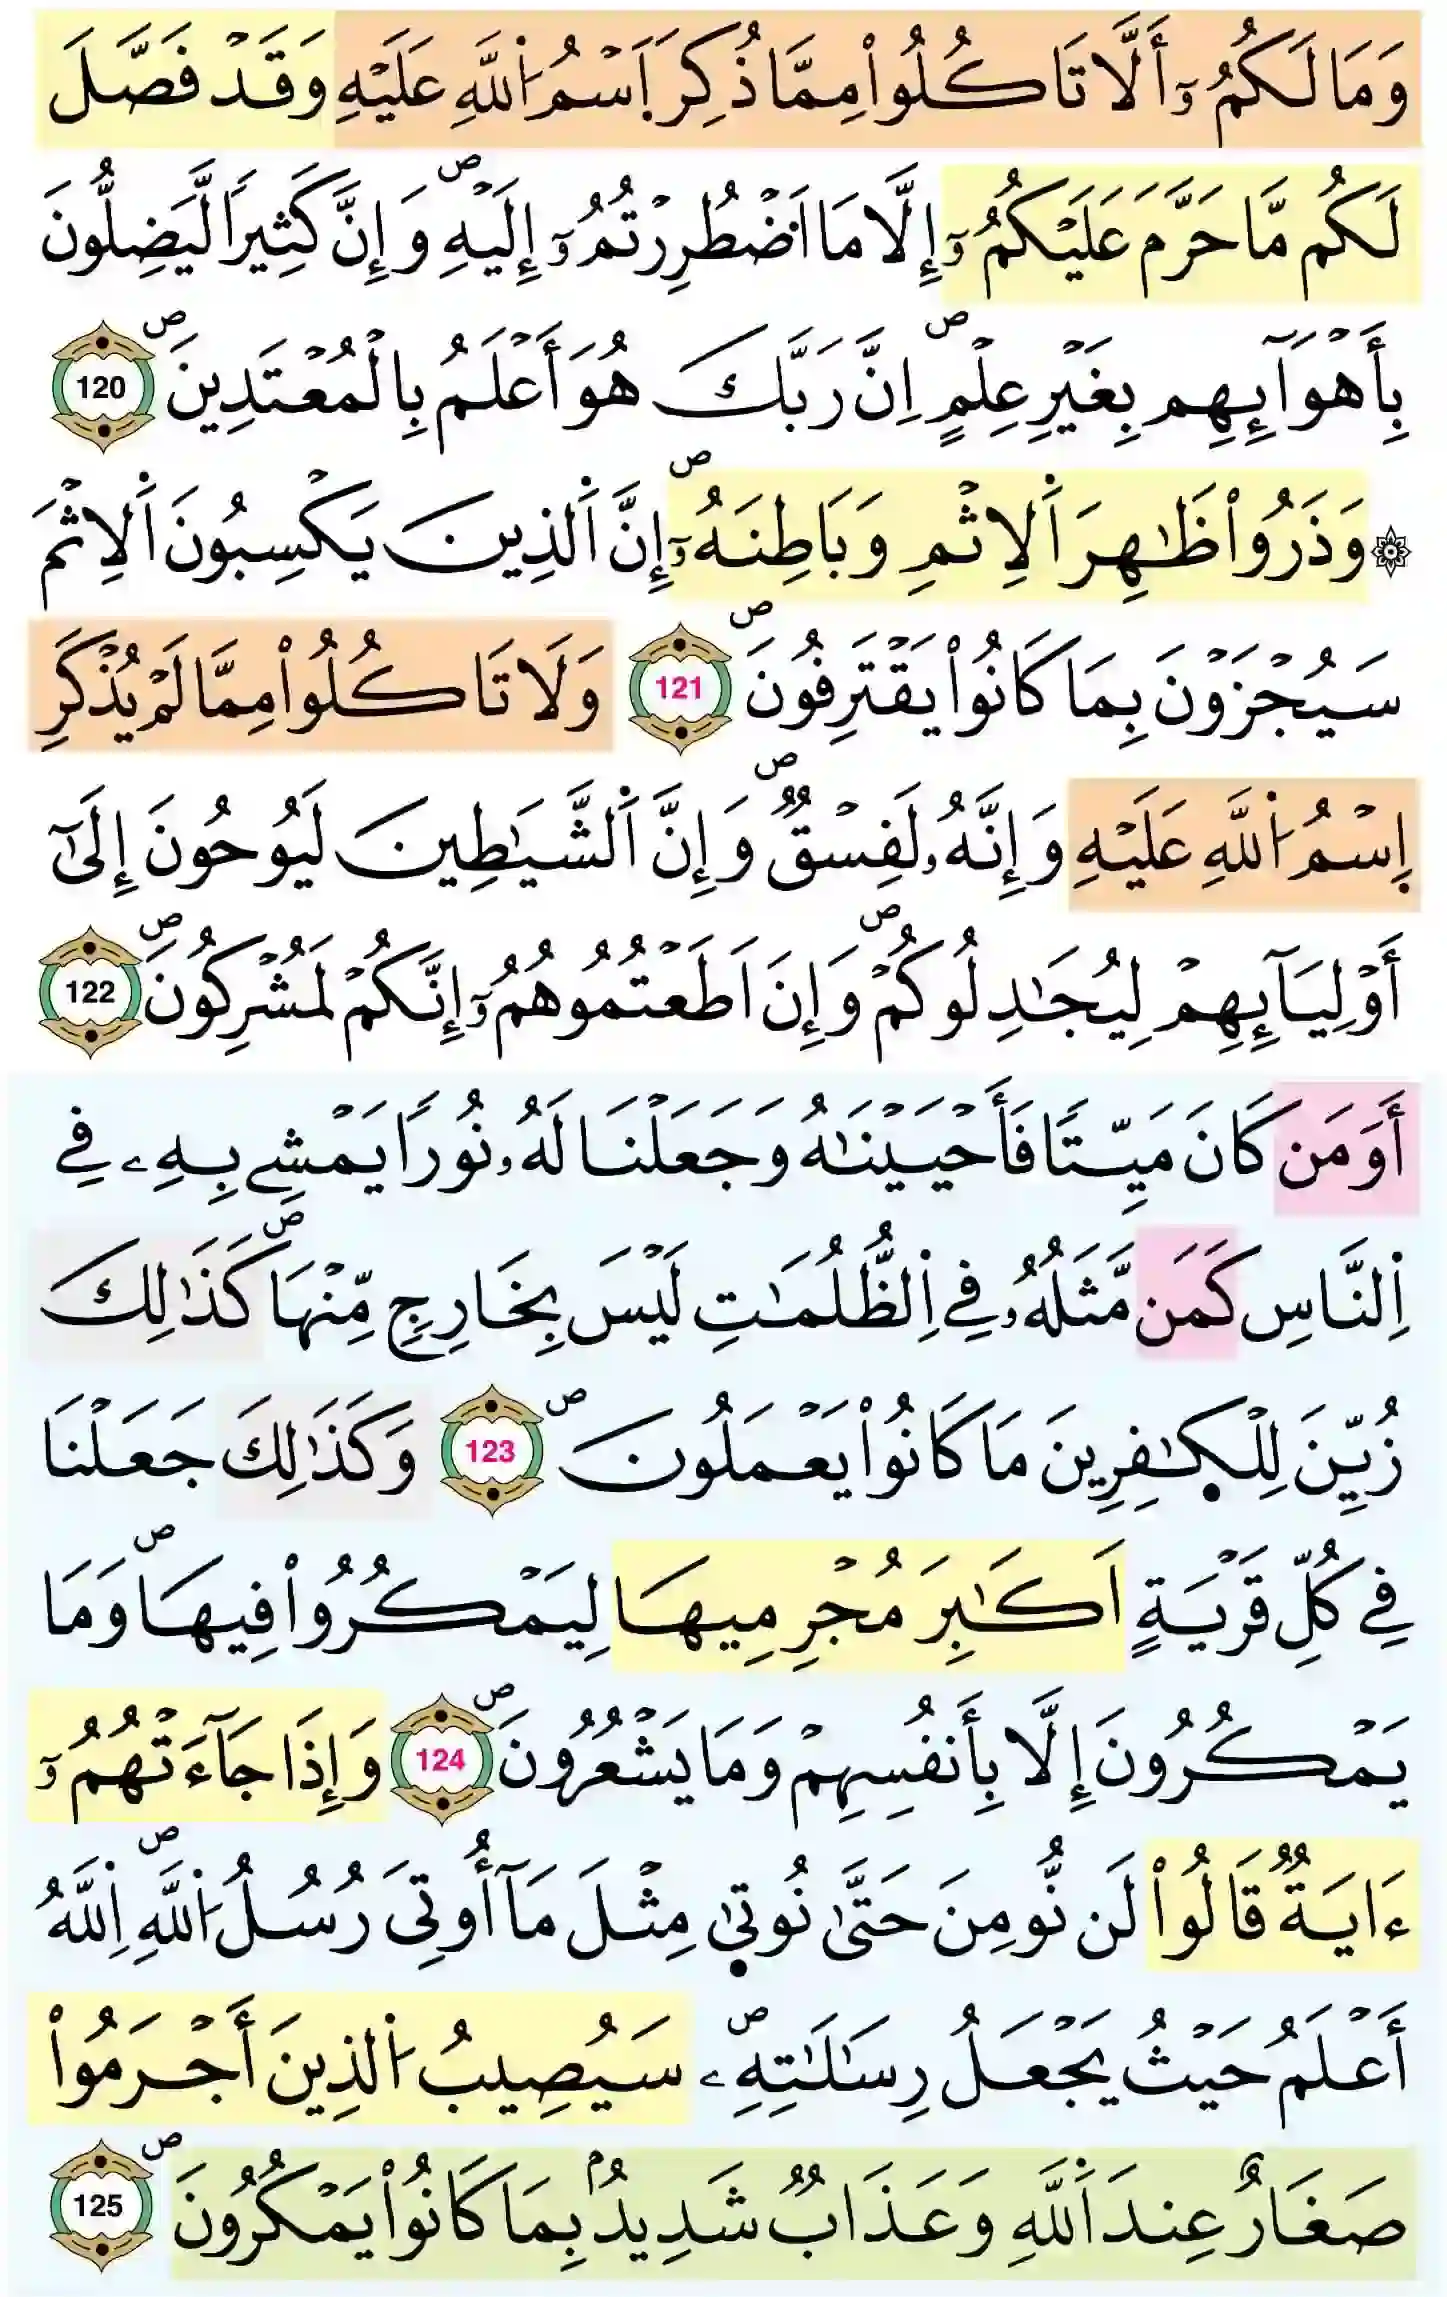 وَمَا لَكُمُۥٓ أَلَّا تَاكُلُواْ مِمَّا ذُكِرَ اَ۪سْمُ اُ۬للَّهِ عَلَيْهِ وَقَدْ فَصَّلَ
لَكُم مَّا حَرَّمَ عَلَيْكُمُۥٓ إِلَّا مَا اَ۟ضْطُرِرْتُمُۥٓ إِلَيْهِۖ وَإِنَّ كَثِيراً لَّيَضِلُّونَ
بِأَهْوَآئِهِم بِغَيْرِ عِلْمٍۖ اِنَّ رَبَّكَ هُوَ أَعْلَمُ بِالْمُعْتَدِينَۖ 120
۞ وَذَرُواْ ظَٰهِرَ اَ۬لِاثْمِ وَبَاطِنَهُۥٓۖ إِنَّ اَ۬لذِينَ يَكْسِبُونَ اَ۬لِاثْمَ
سَيُجْزَوْنَ بِمَا كَانُواْ يَقْتَرِفُونَۖ 121 وَلَا تَاكُلُواْ مِمَّا لَمْ يُذْكَرِ
اِ۪سْمُ اُ۬للَّهِ عَلَيْهِ وَإِنَّهُۥ لَفِسْقٌۖ وَإِنَّ اَ۬لشَّيَٰطِينَ لَيُوحُونَ إِلَىٰٓ
أَوْلِيَآئِهِمْ لِيُجَٰدِلُوكُمْۖ وَإِنَ اَطَعْتُمُوهُمُۥٓ إِنَّكُمْ لَمُشْرِكُونَۖ 122
أَوَمَن كَانَ مَيِّتاً فَأَحْيَيْنَٰهُ وَجَعَلْنَا لَهُۥ نُوراً يَمْشِے بِهِۦ فِے
اِ۬لنَّاسِ كَمَن مَّثَلُهُۥ فِے اِ۬لظُّلُمَٰتِ لَيْسَ بِخَارِجٍ مِّنْهَاۖ كَذَٰلِكَ
زُيِّنَ لِلْكٰ۪فِرِينَ مَا كَانُواْ يَعْمَلُونَۖ 123 وَكَذَٰلِكَ جَعَلْنَا
فِے كُلِّ قَرْيَةٍ اَكَٰبِرَ مُجْرِمِيهَا لِيَمْكُرُواْ فِيهَاۖ وَمَا
يَمْكُرُونَ إِلَّا بِأَنفُسِهِمْ وَمَا يَشْعُرُونَۖ 124 وَإِذَا جَآءَتْهُمُۥٓ
ءَايَةٌ قَالُواْ لَن نُّومِنَ حَتَّىٰ نُوت۪يٰ مِثْلَ مَآ أُوتِيَ رُسُلُ اُ۬للَّهِۖ اِ۬للَّهُ
أَعْلَمُ حَيْثُ يَجْعَلُ رِسَٰلَٰتِهِۦۖ سَيُصِيبُ اُ۬لذِينَ أَجْرَمُواْ
صَغَارٌ عِندَ اَ۬للَّهِ وَعَذَابٌ شَدِيدُۢ بِمَا كَانُواْ يَمْكُرُونَۖ 125